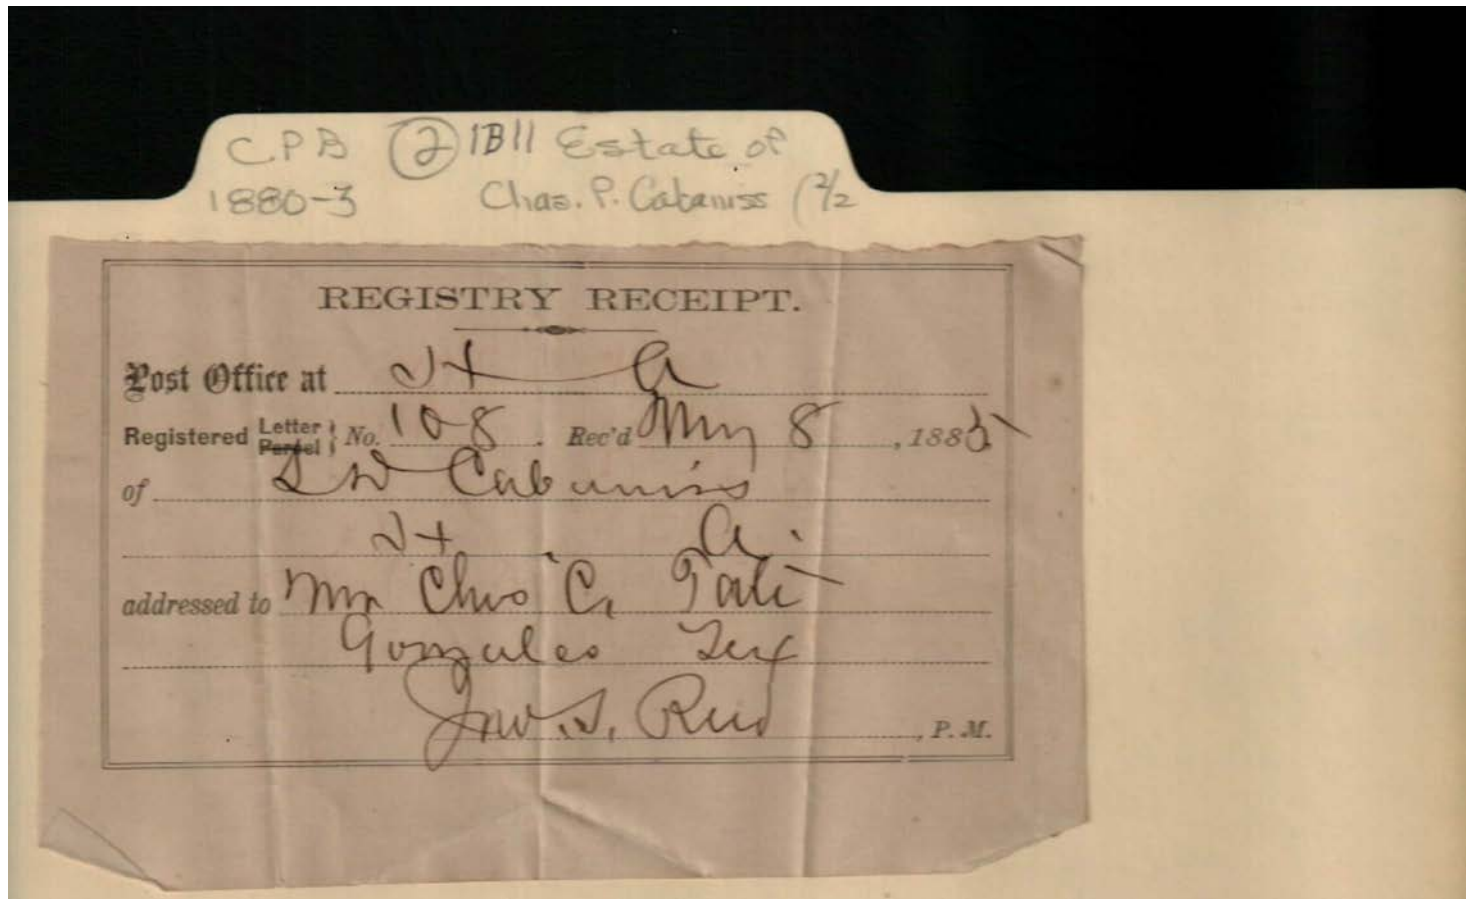 CPB ② 1B11 Estate of
1880-3 Chas. P. Cabaniss (2/2
REGISTRY RECEIPT.
Post Office at
Registered Letter Parcel } No. 108. Rec'd 8, 188
of S W Cabaniss
addressed to Mr Chas C,
Gonzales Tex
Jno. S. Reid, P. M.